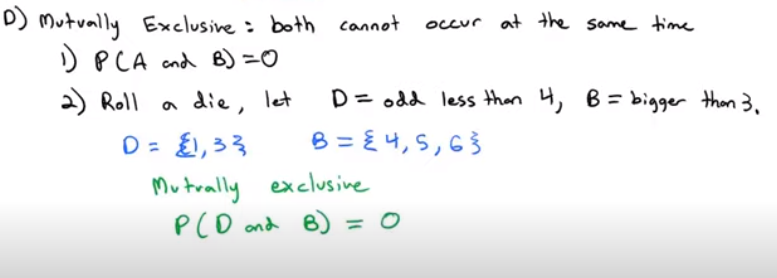 D) Mutually Exclusive: both cannot occur at the same time
1) P(A and B)=0
2) Roll a die, let D = odd less than 4, B = bigger than 3.
D = {1,3} B = {4,5,6}
Mutually exclusive
P(D and B) = 0